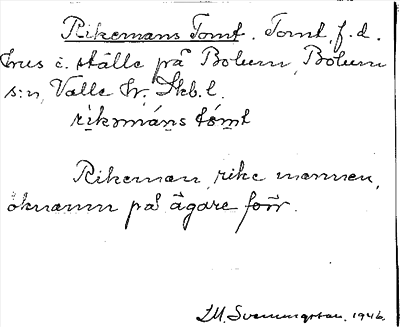 Rikemans Tomt. Tomt, f.d.
hus o. ställe på Bolum, Bolum
s:n, Valle hr. Skb. l.
rikəmáns tómt
Rikeman, rike mannen,
öknamn på ägare förr.
M. Svenungsson. 1946.